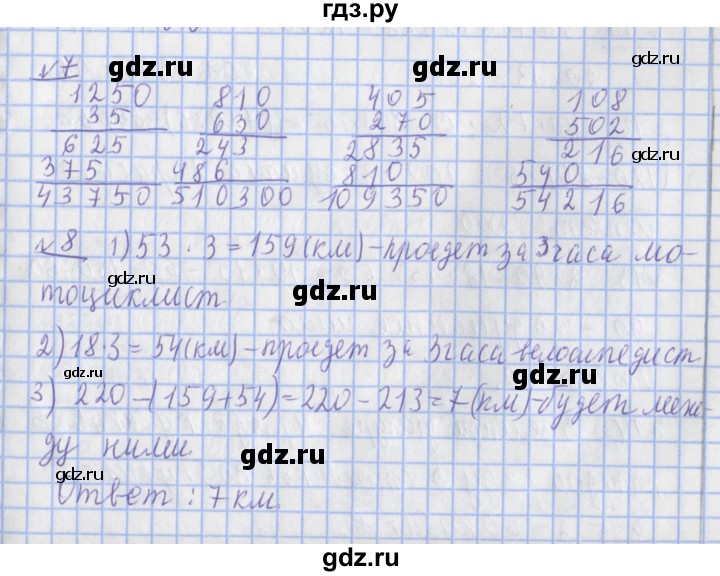 гдз.ру
№7
gdz.ru gdz.ru gdz.ru
1250 810 405 108
35 630 270 502
625 243 2835 216
gdz.ru
375 486 810 540
43750 510300 109350 54216
gdz.ru gdz.ru
№8 1) 53 · 3 = 159 (км) - проедет за 3 часа мо-
gdz.ru
тоциклист
gdz.ru gdz.ru
2) 18·3 = 54 (км) - проедет за 3 часа велосипедист
gdz.ru gdz.ru
3) 220 - (159+54) = 220 - 213 = 7 (км) - будет меж-
ду ними
gdz.ru gdz.ru
Ответ : 7 км
gdz.ru
gdz.ru